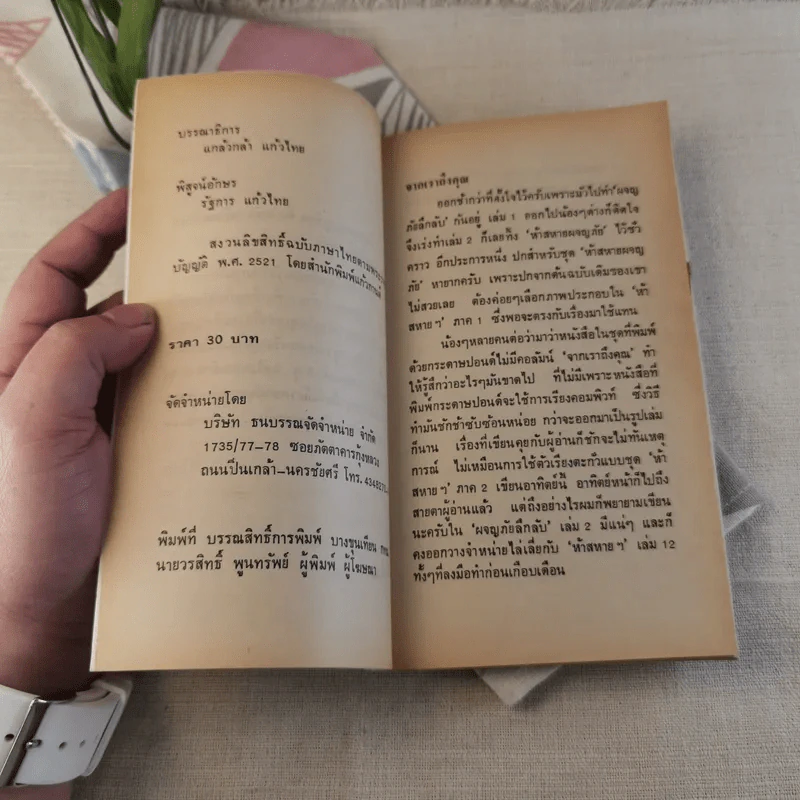 บรรณาธิการ
แกล้วกล้า แก้วไทย
พิสูจน์อักษร
รัฐการ แก้วไทย
สงวนลิขสิทธิ์ฉบับภาษาไทยตาม
บัญญัติ พ.ศ. 2521 โดยสำนักพิมพ์
ราคา 30 บาท
จัดจำหน่ายโดย
บริษัท ธนบรรณจัดจำหน่าย จำกัด
1735/77-78 ซอยภัตตาคารกุ้งหลวง
ถนนปิ่นเกล้า-นครชัยศรี โทร.
พิมพ์ที่ บรรณสิทธิ์การพิมพ์ บางขุนเทียน
นายวรสิทธิ์ พูนทรัพย์ ผู้พิมพ์ ผู้โฆษณา
จากเราถึงคุณ
ออกช้ากว่าที่ตั้งใจไว้ครับเพราะมัวไปทำ 'ผจญ
ภัยลึกลับ' กันอยู่ เล่ม 1 ออกไปน้องๆต่างก็ติดใจ
จึงเร่งทำเล่ม 2 ก็เลยทิ้ง 'ห้าสหายผจญภัย' ไว้ชั่ว
คราว อีกประการหนึ่ง ปกสำหรับชุด 'ห้าสหายผจญ
ภัย' หายากครับ เพราะปกจากต้นฉบับเดิมของเขา
ไม่สวยเลย ต้องค่อยๆเลือกภาพประกอบใน 'ห้า
สหายฯ' ภาค 1 ซึ่งพอจะตรงกับเรื่องมาใช้แทน
น้องๆหลายคนต่อว่ามาว่าหนังสือในชุดที่พิมพ์
ด้วยกระดาษปอนด์ไม่มีคอลัมน์ 'จากเราถึงคุณ' ทำ
ให้รู้สึกว่าอะไรๆมันขาดไป ที่ไม่มีเพราะหนังสือที่
พิมพ์กระดาษปอนด์จะใช้การเรียงคอมพิวท์ ซึ่งวิธี
ทำมันชักช้าซับซ้อนหน่อย กว่าจะออกมาเป็นรูปเล่ม
ก็นาน เรื่องที่เขียนคุยกับผู้อ่านก็ชักจะไม่ทันเหตุ
การณ์ ไม่เหมือนการใช้ตัวเรียงตะกั่วแบบชุด 'ห้า
สหายฯ' ภาค 2 เขียนอาทิตย์นี้ อาทิตย์หน้าก็ไปถึง
สายตาผู้อ่านแล้ว แต่ถึงอย่างไรผมก็พยายามเขียน
นะครับใน 'ผจญภัยลึกลับ' เล่ม 2 มีแน่ๆ และก็
คงออกวางจำหน่ายไล่เลี่ยกับ 'ห้าสหายฯ' เล่ม 12
ทั้งๆที่ลงมือทำก่อนเกือบเดือน